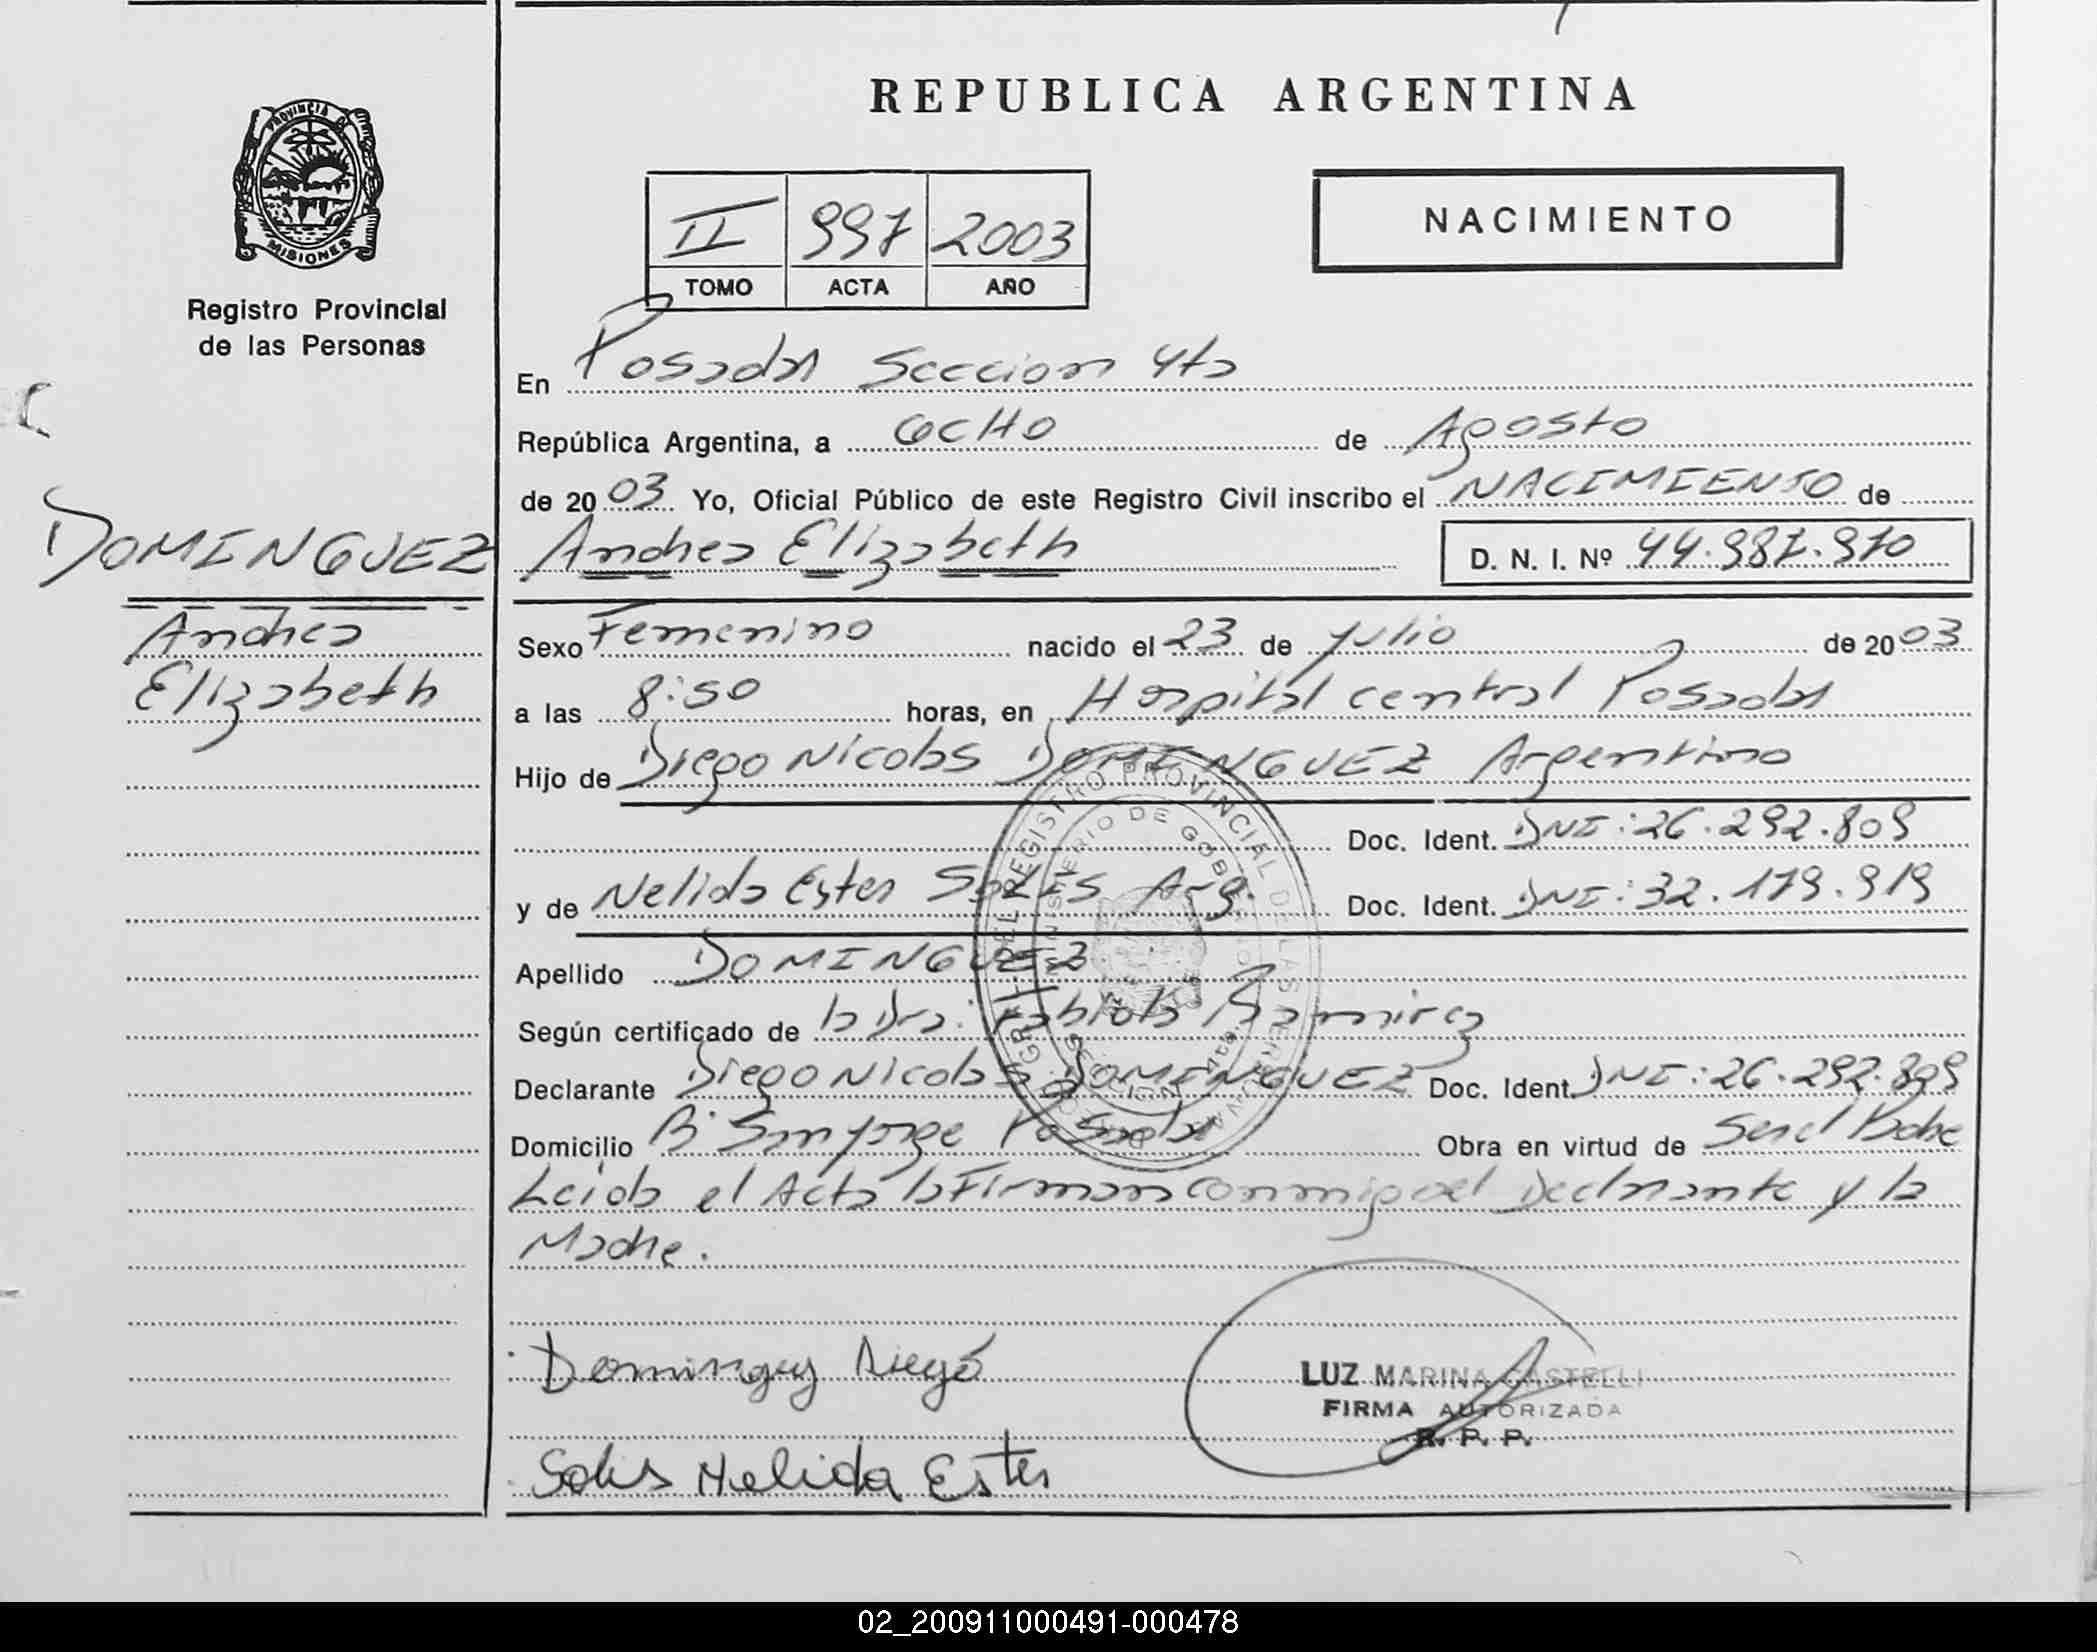 REPUBLICA ARGENTINA
PROVINCIA DE MISIONES
Registro Provincial
de las Personas
II 997 2003
TOMO ACTA AÑO
NACIMIENTO
En Posadas Seccion 4ta
República Argentina, a OCHO de Agosto
de 2003 Yo, Oficial Público de este Registro Civil inscribo el NACIMIENTO de
DOMINGUEZ
Andrea
Elizabeth
Andrea Elizabeth D. N. I. Nº 44.987.970
Sexo Femenino nacido el 23 de Julio de 2003
a las 8:50 horas, en Hospital central Posadas
Hijo de Diego Nicolas DOMINGUEZ Argentino
Doc. Ident. DNI: 26.292.809
y de Nelida Ester SOLIS Arg. Doc. Ident. DNI: 32.179.919
Apellido DOMINGUEZ
Según certificado de la Dra. Fabiola Ramirez
Declarante Diego Nicolas DOMINGUEZ Doc. Ident. DNI: 26.292.809
Domicilio B° San Jorge Posadas Obra en virtud de Ser el Padre
Leida el Acta la Firman conmigo el Declarante y la
Madre.
REGISTRO PROVINCIAL DE LAS PERSONAS
MINISTERIO DE GOBIERNO
SECCION 4ta.
Dominguez Diego
LUZ MARINA CASTELLI
FIRMA AUTORIZADA
R. P. P.
Solis Nelida Ester
02_200911000491-000478